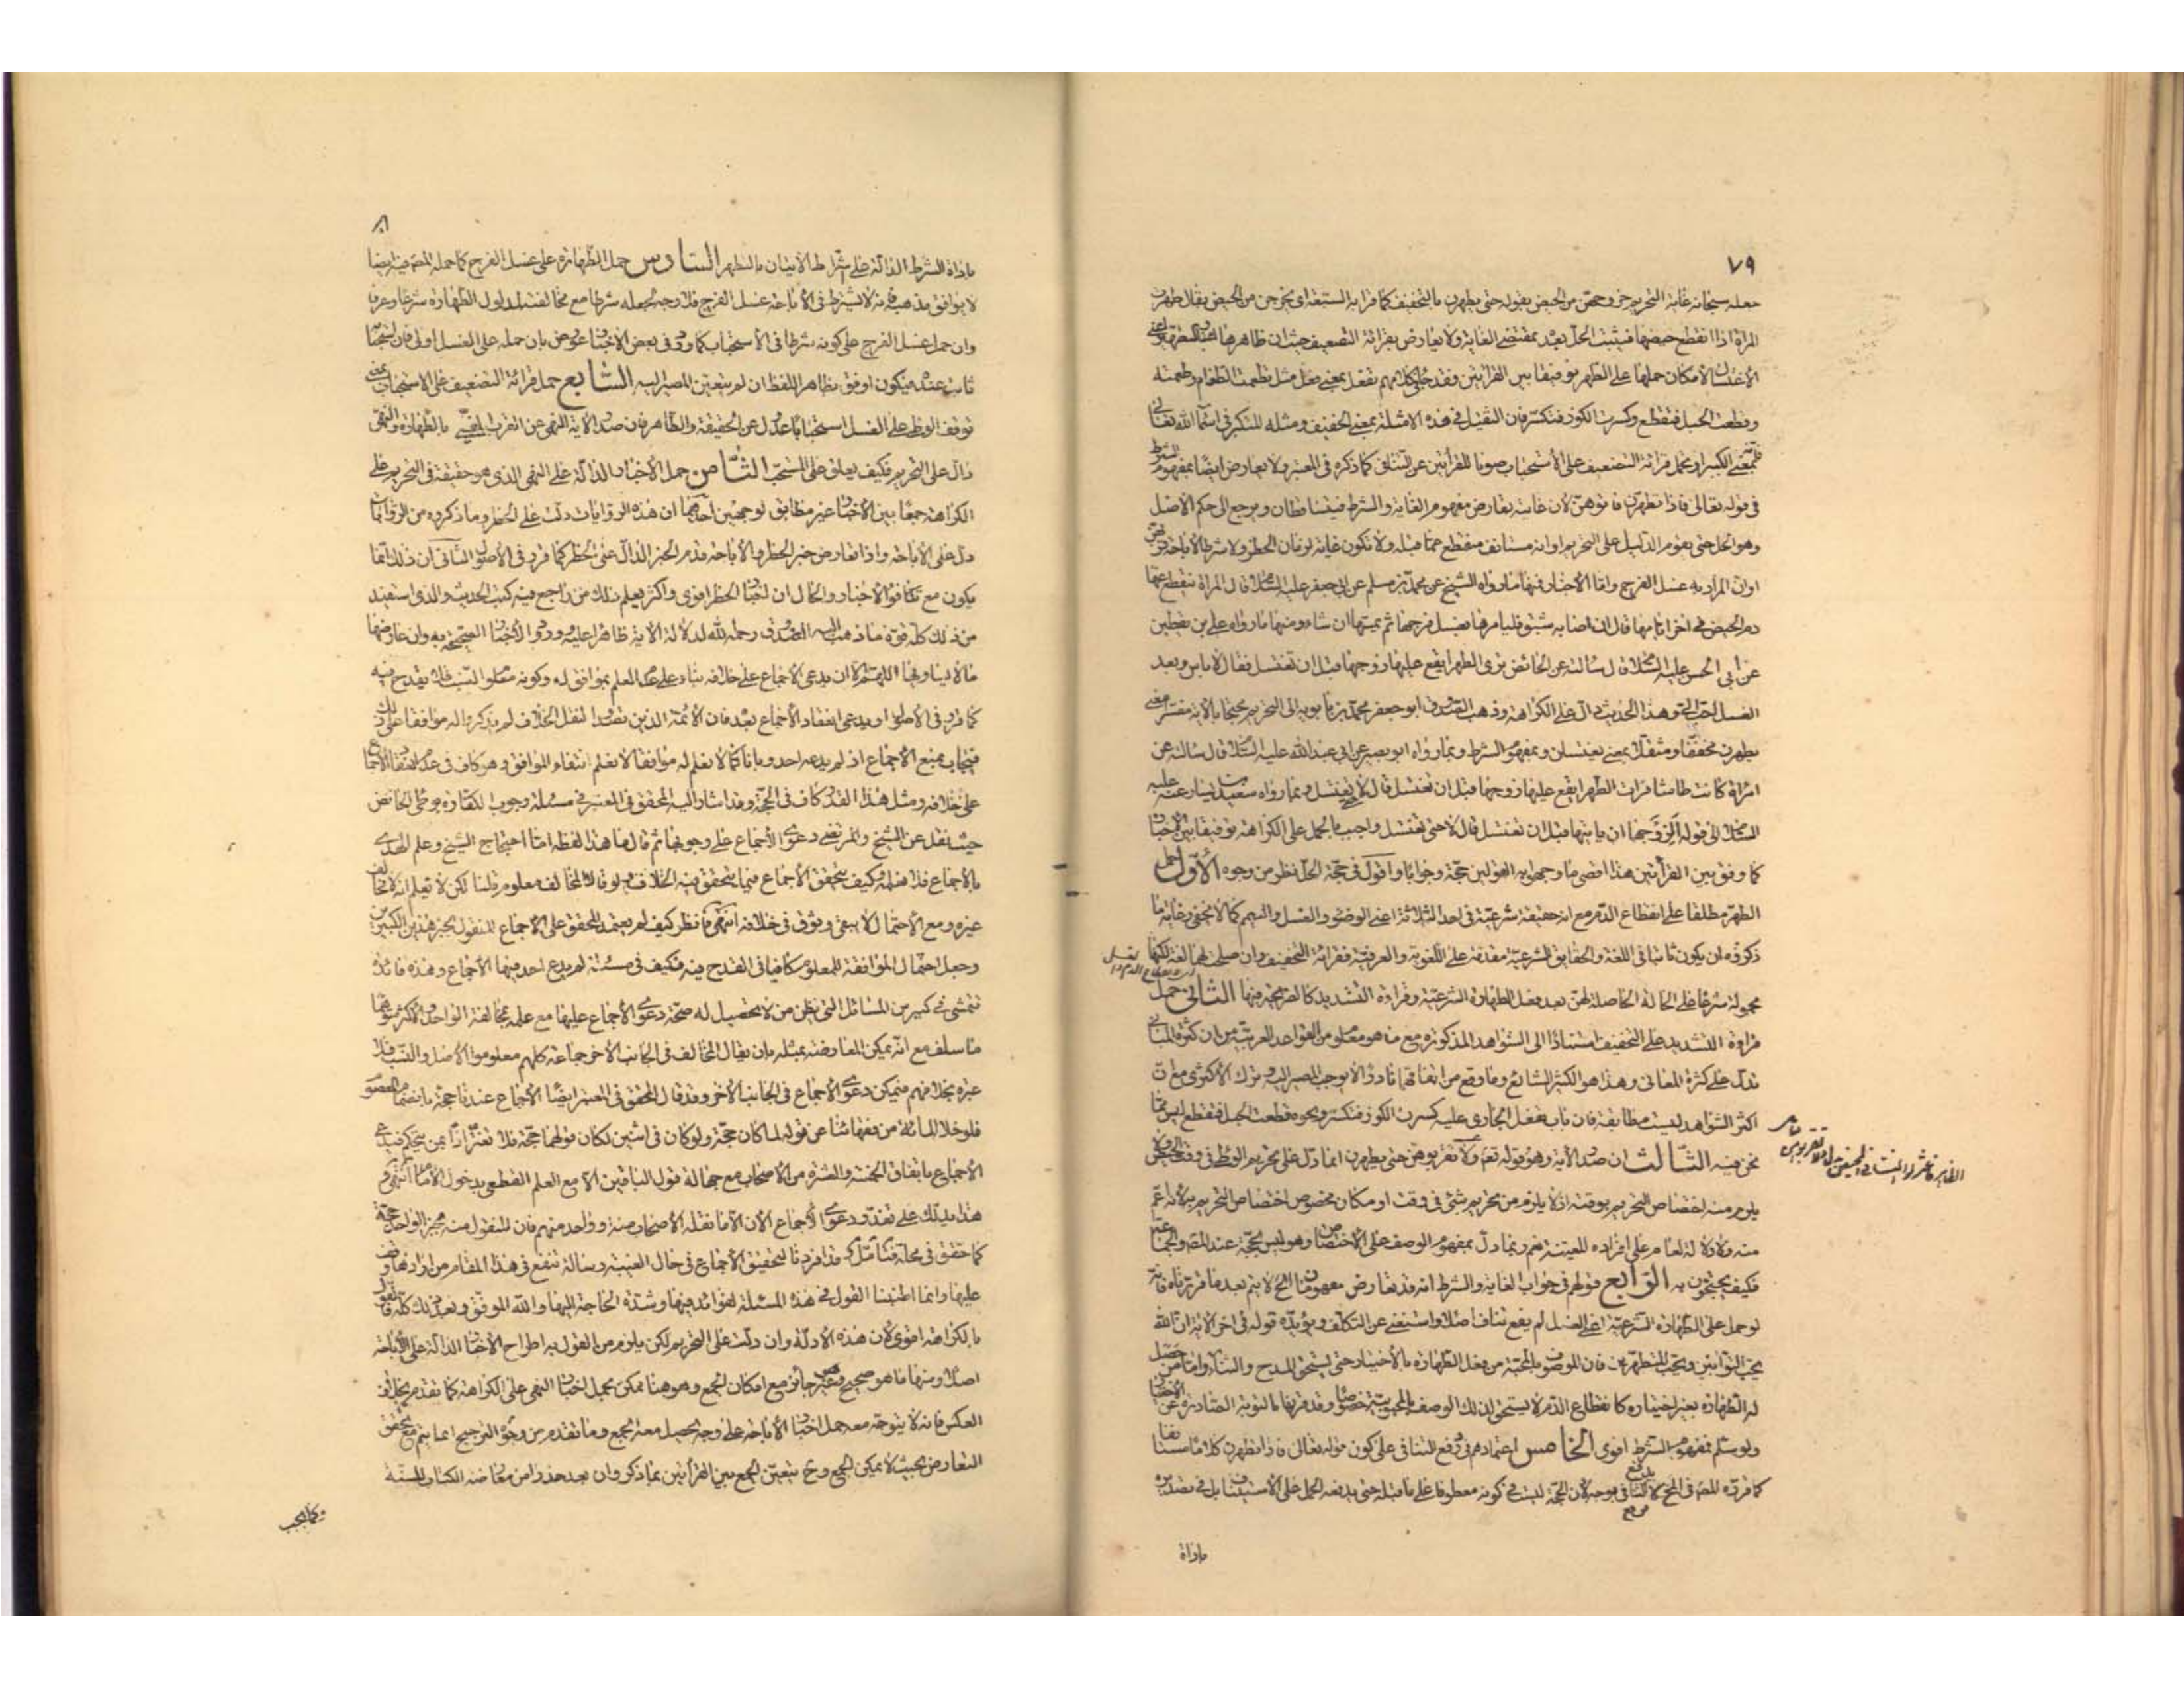 ٧٩
جعله سبحانه غاية التحريم خروجهن من الحيض بقوله حتى يطهرن بالتخفيف كما قرا به السبعة اى يخرجن من الحيض يقال طهرت
المراة اذا انقطع حيضها فيثبت الحل بعد بمقتضى الغاية ولا يعارض بقرائة التضعيف حيث ان ظاهرها
الاغتسال لامكان حملها على الطهر توفيقا بين القرائتين وفقد جاء فى كلامهم تفعل بمعنى فعل مثل تطعمت الطعام وطعمته
وقطعت الحبل فتقطع وكسرت الكوز فتكسر فان الثقيل فى هذه الامثلة بمعنى الخفيف ومثله المتكبر فى اسماء الله تعالى
بمعنى الكبير او تحمل قرائة التضعيف على الاستحباب صونا للقرائتين عن التنافى كما ذكره فى المعتبر ولا يعارض ايضا بمفهوم الشرط
فى قوله تعالى فاذا تطهرن فاتوهن لان غايته تعارض مفهوم الغاية والشرط فيتساقطان ويرجع الى حكم الاصل
وهو الحل حتى يقوم الدليل على التحريم او انه مستانف منقطع عما قبله ولا تكون غاية لزمان الحظر ولا شرطا لاباحة
او ان المراد به غسل الفرج واما الاخبار فمنها ما رواه الشيخ عن محمد بن مسلم عن ابى جعفر عليه السلام قال المراة ينقطع عنها
دم الحيض فى اخر ايامها قال ان اصابه شبق فليامرها فتغسل فرجها ثم يمسها ان شاء ومنها ما رواه على بن يقطين
عن ابى الحسن عليه السلام قال سالته عن الحائض ترى الطهر ايقع عليها زوجها قبل ان تغتسل فقال لا باس وبعد
الغسل احب الى وهذا الحديث دال على الكراهة وذهب الصدوق ابو جعفر محمد بن بابويه الى التحريم محتجا بالاية مفسرا معنى
يطهرن مخففا ومثقلا بمعنى يغتسلن وبمفهوم الشرط وبما رواه ابو بصير عن ابى عبد الله عليه السلام قال سالته عن
امراة كانت طامثا فرات الطهر ايقع عليها زوجها قبل ان تغتسل قال لا حتى تغتسل وبما رواه سعيد بن يسار عنه عليه
السلام الى قوله الزوجها ان ياتيها قبل ان تغتسل قال لا حتى تغتسل واجيب بالحمل على الكراهة توفيقا بين الاخبار
كما وفق بين القرائتين هذا اقصى ما وجهوا به القولين حجة وجوابا واقول فى حجة الحل نظر من وجوه الاول حمل
الطهر مطلقا على انقطاع الدم مع انه حقيقة شرعية فى احد الثلاثة اعنى الوضوء والغسل والتيمم كما لا يخفى وغاية ما
ذكروه ان يكون ثابتا فى اللغة والحقايق الشرعية مقدمة على اللغوية والعرفية فقرائة التخفيف وان صلح لها لغة لكنها
محمولة شرعا على الحالة الحاصلة لهن بعد فعل الطهارة الشرعية وقراءة التشديد كالصريحة فيها الثانى حمل
قراءة التشديد على التخفيف استنادا الى الشواهد المذكورة مع ما هو معلوم من القواعد العربية من ان كثرة المبانى
تدل على كثرة المعانى وهذا هو الكثير الشايع وما وقع من اتفاقهما نادرا لا يوجب المصير اليه وترك الاكثرى مع ان
اكثر الشواهد ليست مطابقة فان باب تفعل الجارى عليه كسرت الكوز فتكسر ونحوه قطعت الحبل فتقطع ليس مما
نحن فيه الثالث ان صدر الاية وهو قوله تعالى ولا تقربوهن حتى يطهرن انما دل على تحريم الوطئ فى وقت الحيض ولا
يلزم منه اختصاص التحريم بوقته اذ لا يلزم من تحريم شئ فى وقت او مكان مخصوص اختصاص التحريم به لانه اعم
منه ولا دلالة لعام على افراده المعينة نعم ربما دل بمفهوم الوصف على الاختصاص وهو ليس بحجة عند المصنف والجماعة
فكيف يحتجون به الرابع قولهم فى جواب الغاية والشرط انه قد تعارض مفهومان الخ لا يتم بعد ما قررناه فانه
لو حمل على الطهارة الشرعية اعنى الغسل لم يقع تناف اصلا واستغنى عن التكلف ويؤيده قوله فى اخر الاية ان الله
يحب التوابين ويحب المتطهرين فان الموصوف بالمحبة من فعل الطهارة بالاختيار حتى يستحق المدح والثناء واما من حصل
له الطهارة بغير اختياره كانقطاع الدم لا يستحق لذلك الوصف بالمحبوبية خصوصا وقد قرنها بالتوبة الصادرة عن الاختيار
ولو سلم فمفهوم الشرط اقوى الخامس اعتمادهم فى دفع التنافى على كون قوله تعالى فاذا تطهرن كلاما مستانفا
كما قرره المصنف فى المخ لا يدفع التنافى بوجه لان الحجة ليست فى كونه معطوفا على ما قبله حتى يدفعه الحمل على الاستيناف بل فى تصديره
باداة
باداة الشرط الدالة على اشتراط الاتيان بالتطهر السادس حمل الطهارة على غسل الفرج كما حمله المصنف فيه ايضا
لا يوافق مذهبه فانه لا يشترط فى الاباحة غسل الفرج فلا وجه لجعله شرطا مع مخالفته لمدلول الطهارة شرعا وعرفا
وان حمل غسل الفرج على كونه شرطا فى الاستحباب كما ورد فى بعض الاخبار عورض بان حمله على الغسل اولى فان استحبابه
ثابت عنده فيكون اوفق بظاهر اللفظ ان لم يتعين المصير اليه السابع حمل قرائة التضعيف على الاستحباب بمعنى
توقف الوطى على الغسل استحبابا عدول عن الحقيقة والظاهر فان صدر الاية النهى عن القرب المغيى بالطهارة والنهى
دال على التحريم فكيف يعلق على المستحب الثامن حمل الاخبار الدالة على النهى الذى هو حقيقة فى التحريم على
الكراهة جمعا بين الاخبار غير مطابق لوجهين احدهما ان هذه الروايات دلت على الحظر وما ذكروه من الروايات
دل على الاباحة واذا تعارض خبر الحظر والاباحة قدم الخبر الدال على الحظر كما قرر فى الاصول الثانى ان ذلك انما
يكون مع تكافؤ الاخبار والحال ان اخبار الحظر اقوى واكثر يعلم ذلك من راجع فيه كتب الحديث والذى استفيد
من ذلك كله قوة ما ذهب اليه الصدوق رحمه الله لدلالة الاية ظاهرا عليه وورود الاخبار الصحيحة به وان عارضها
ما لا يساويها اللهم الا ان يدعى الاجماع على خلافه بناء على عدم العلم بموافق له وكونه معلوم النسب فلا يقدح فيه
كما قرر فى الاصول او يدعى انعقاد الاجماع بعده فان الائمة الذين تصدوا لنقل الخلاف لم يذكروا له موافقا على ذلك
فيجاب بمنع الاجماع اذ لم يدعه احد وبانا كما لا نعلم له موافقا لا نعلم انتفاء الموافق وهو كاف فى عدم انعقاد الاجماع
على خلافه ومثل هذا القدر كاف فى الحجة وقد اشار اليه المحقق فى المعتبر فى مسئلة وجوب الكفارة بوطئ الحائض
حيث نقل عن الشيخ والمرتضى دعوى الاجماع على وجوبها ثم قال ما هذا لفظه اما احتجاج الشيخ وعلم الهدى
بالاجماع فلا نعلمه وكيف يتحقق الاجماع فيما يتحقق فيه الخلاف ولو قال المخالف معلوم قلنا لكن لا نعلم انه لا مخالف
غيره ومع الاحتمال لا يبقى وثوق فى خلافه انتهى فانظر كيف لم يعتمد المحقق على الاجماع المنقول بخبر هذين الكبيرين
وجعل احتمال الموافقة للمعلوم كافيا فى القدح فيه فكيف فى مسئلة لم يدع احد فيها الاجماع وهذه فائدة
تتمشى فى كثير من المسائل التى يظن من لا تحصيل له صحة دعوى الاجماع عليها مع علمه بمخالفة الواحد والاكثر
ما سلف مع انه يمكن المعارضة بمثله بان يقال المخالف فى الجانب الاخر جماعة كلهم معلوموا الاصل والنسب فلا
عبرة بخلافهم فيمكن دعوى الاجماع فى الجانب الاخر وقد قال المحقق فى المعتبر ايضا الاجماع عندنا حجة بانضمام المعصوم
فلو خلا المائة من فقهائنا عن قوله لما كان حجة ولو كان فى اثنين لكان قولهما حجة فلا تغتر اذا بمن يتحكم فيدعى
الاجماع باتفاق الخمسة والعشرة من الاصحاب مع جهالة قول الباقين الا مع العلم القطعى بدخول الامام انتهى و
هذا يدلك على تعذر دعوى الاجماع الان الا ما نقله الاصحاب منه وواحد منهم فان المنقول منه بخبر الواحد حجة
كما حقق فى محله فتامل وقد افردنا لتحقيق الاجماع فى حال الغيبة رسالة تنفع فى هذا المقام من ارادها وقف
عليها وانما اطنبنا القول فى هذه المسئلة لفوائد فيها وشدة الحاجة اليها والله الموفق وبعد ذلك كله فالقول
بالكراهة اقوى لان هذه الادلة وان دلت على التحريم لكن يلزم من القول به اطراح الاخبار الدالة على الاباحة
اصلا ومنها ما هو صحيح وهو غير جائز مع امكان الجمع وهو هنا ممكن بحمل اخبار النهى على الكراهة كما تقدم بخلاف
العكس فانه لا يتوجه معه حمل اخبار الاباحة على وجه يحصل معه الجمع وما تقدم من وجوه الترجيح انما يتم مع تحقق
التعارض بحيث لا يمكن الجمع وح يتعين الجمع بين القرائتين بما ذكر وان بعد حذرا من معارضة الكتاب للسنة
فكما يجب